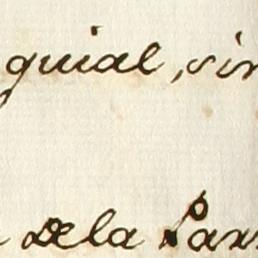 quial, sin
dela Par